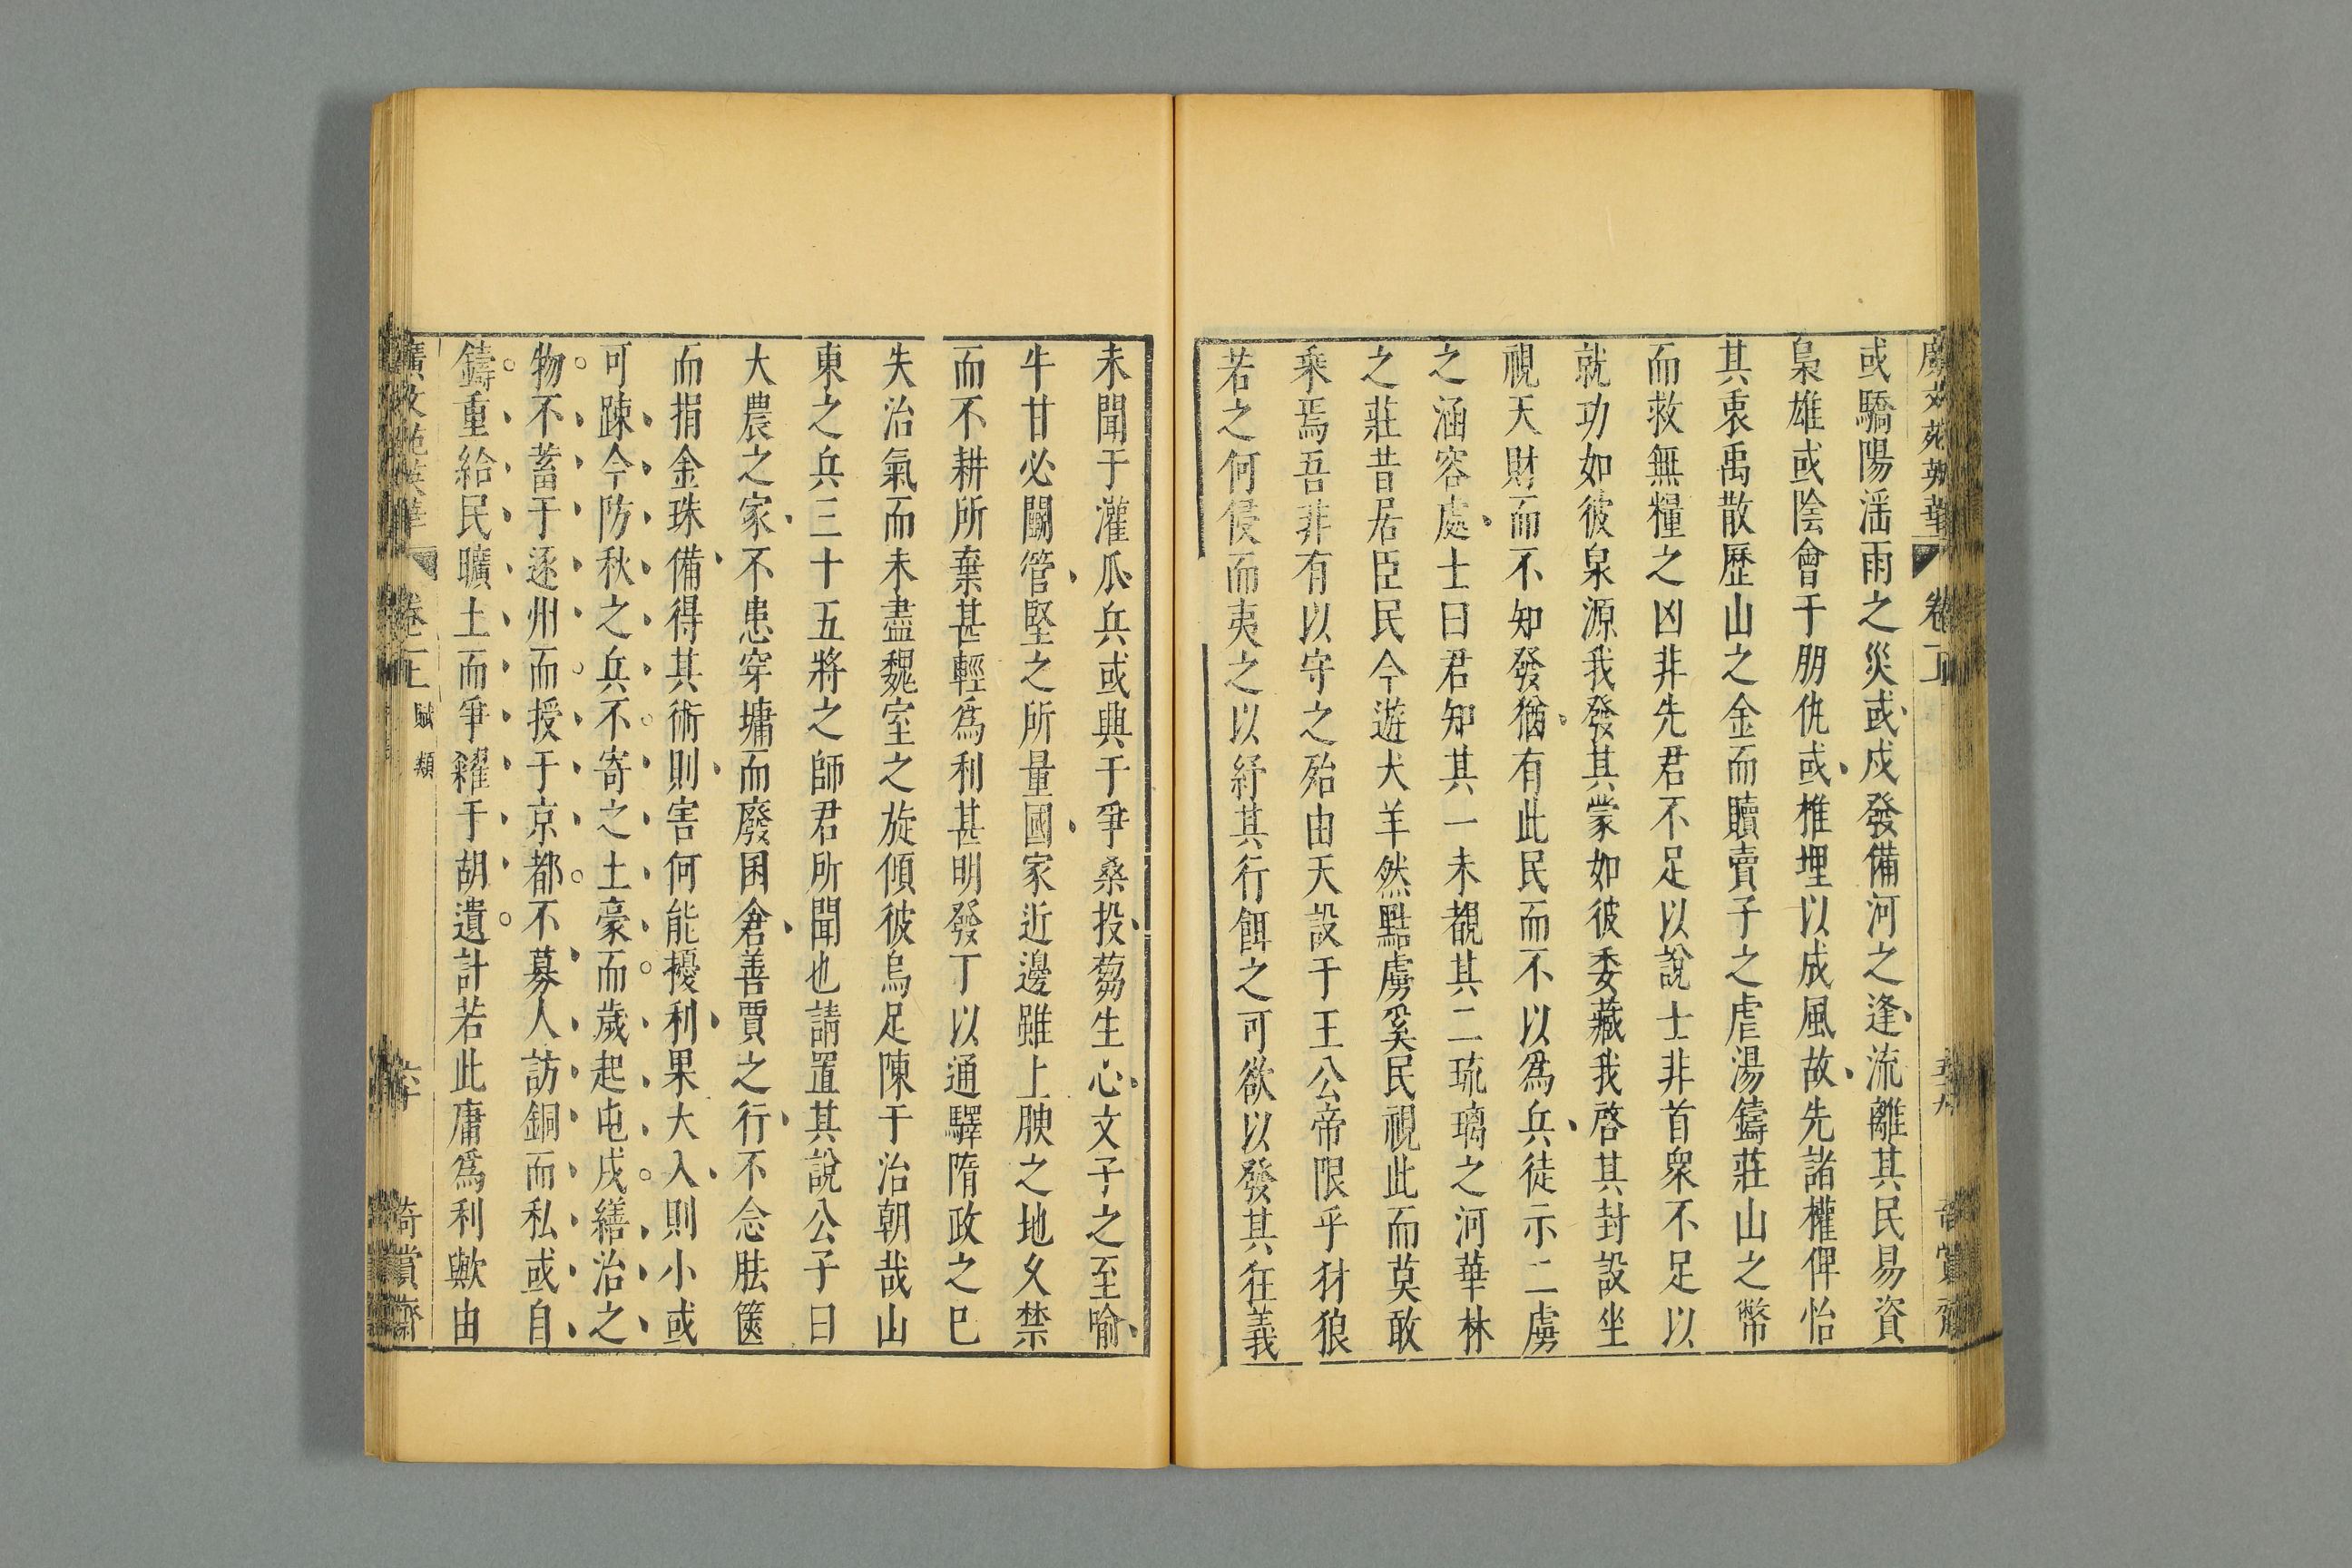 或驕陽滛雨之災或戍發備河之逢流離其民易資
梟雄或隂會于朋仇或椎埋以成風故先諸權俾怡
其衷禹散歷山之金而贖賣子之虐湯鑄莊山之幣
而救無糧之凶非先君不足以說士非首衆不足以
就功如彼泉源我發其蒙如彼委藏我啓其封設坐
視天財而不知發猶有此民而不以爲兵徒示二虜
之涵容處士曰君知其一未覩其二琉璃之河華林
之莊昔居臣民今遊犬羊然點虜奚民視此而莫敢
乘焉吾非有以守之殆由天設于王公帝限乎豺狼
若之何侵而夷之以紓其行餌之可欲以發其狂義
未聞于灌瓜兵或興于爭桑投蒭生心文子之至喻
牛甘必關管堅之所量國家近邊雖上腴之地夂禁
而不耕所棄甚輕爲利甚明發丁以通驛隋政之巳
失治氣而未盡魏室之旋傾彼烏足陳于治朝哉山
東之兵三十五將之師君所聞也請置其說公子曰
大農之家不患穿墉而廢囷倉善賈之行不念胠篋
而捐金珠備得其術則害何能擾利果大入則小或
可踈今防秋之兵不寄之土豪而歲起屯戍繕治之
物不蓄于逐州而授于京都不募人訪銅而私或自
鑄重給民曠土而爭糴于胡遺計若此庸爲利歟由
廣文苑英華 卷上 賦類 六十 奇賞齋